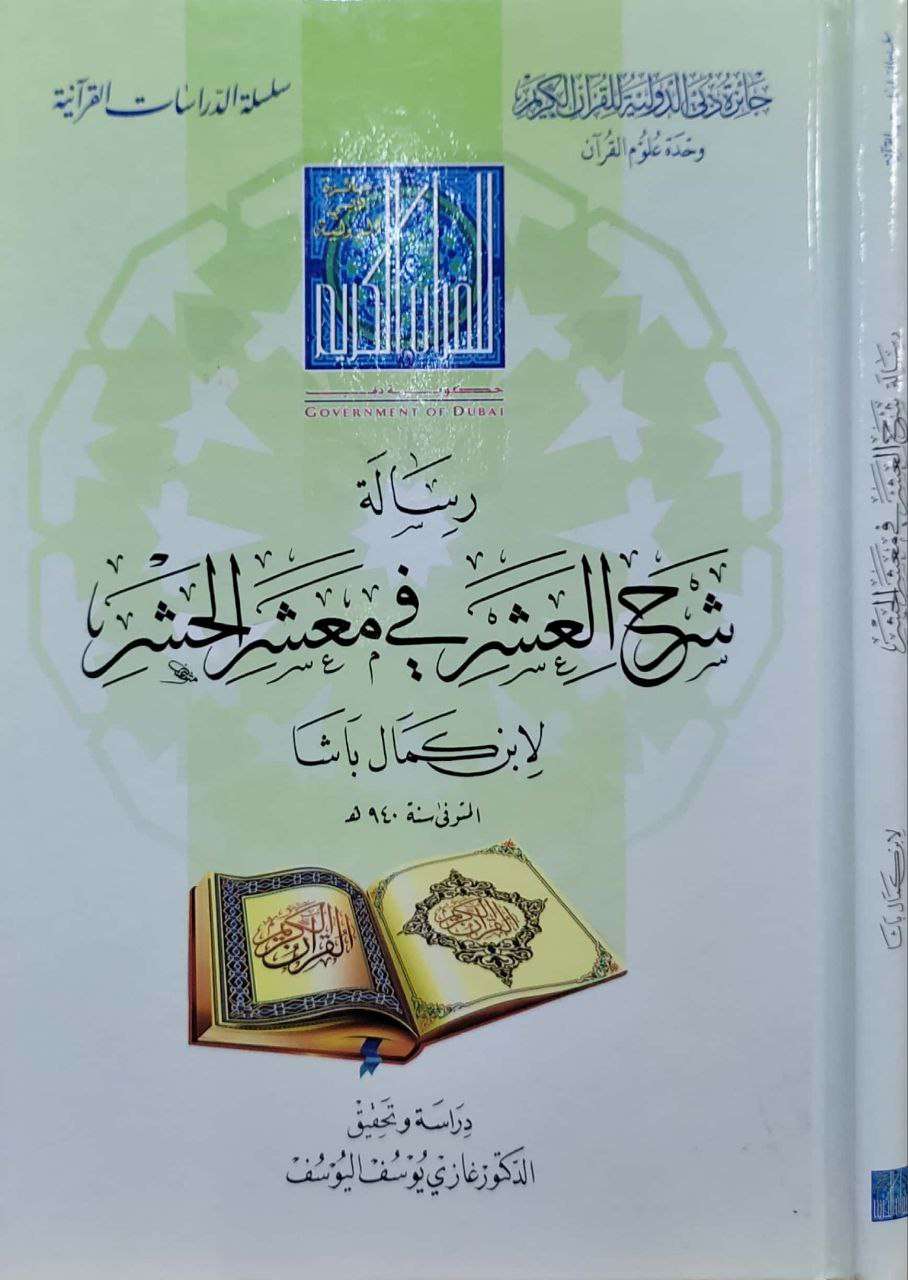 جائزة دبي الدولية للقرآن الكريم
وحدة علوم القرآن
سلسلة الدراسات القرآنية
جائزة
دبي
الدولية
للقرآن الكريم
حكومة دبي
GOVERNMENT OF DUBAI
رِسَالَة
شَرح العَشر في مَعشَر الحَشْر
لابن كمال باشا
المتوفى سنة ٩٤٠ هـ
القرآن الكريم
القرآن الكريم
دراسة وتحقيق
الدكتور غازي يوسف اليوسف
رسالة شرح العشر في معشر الحشر
لابن كمال باشا